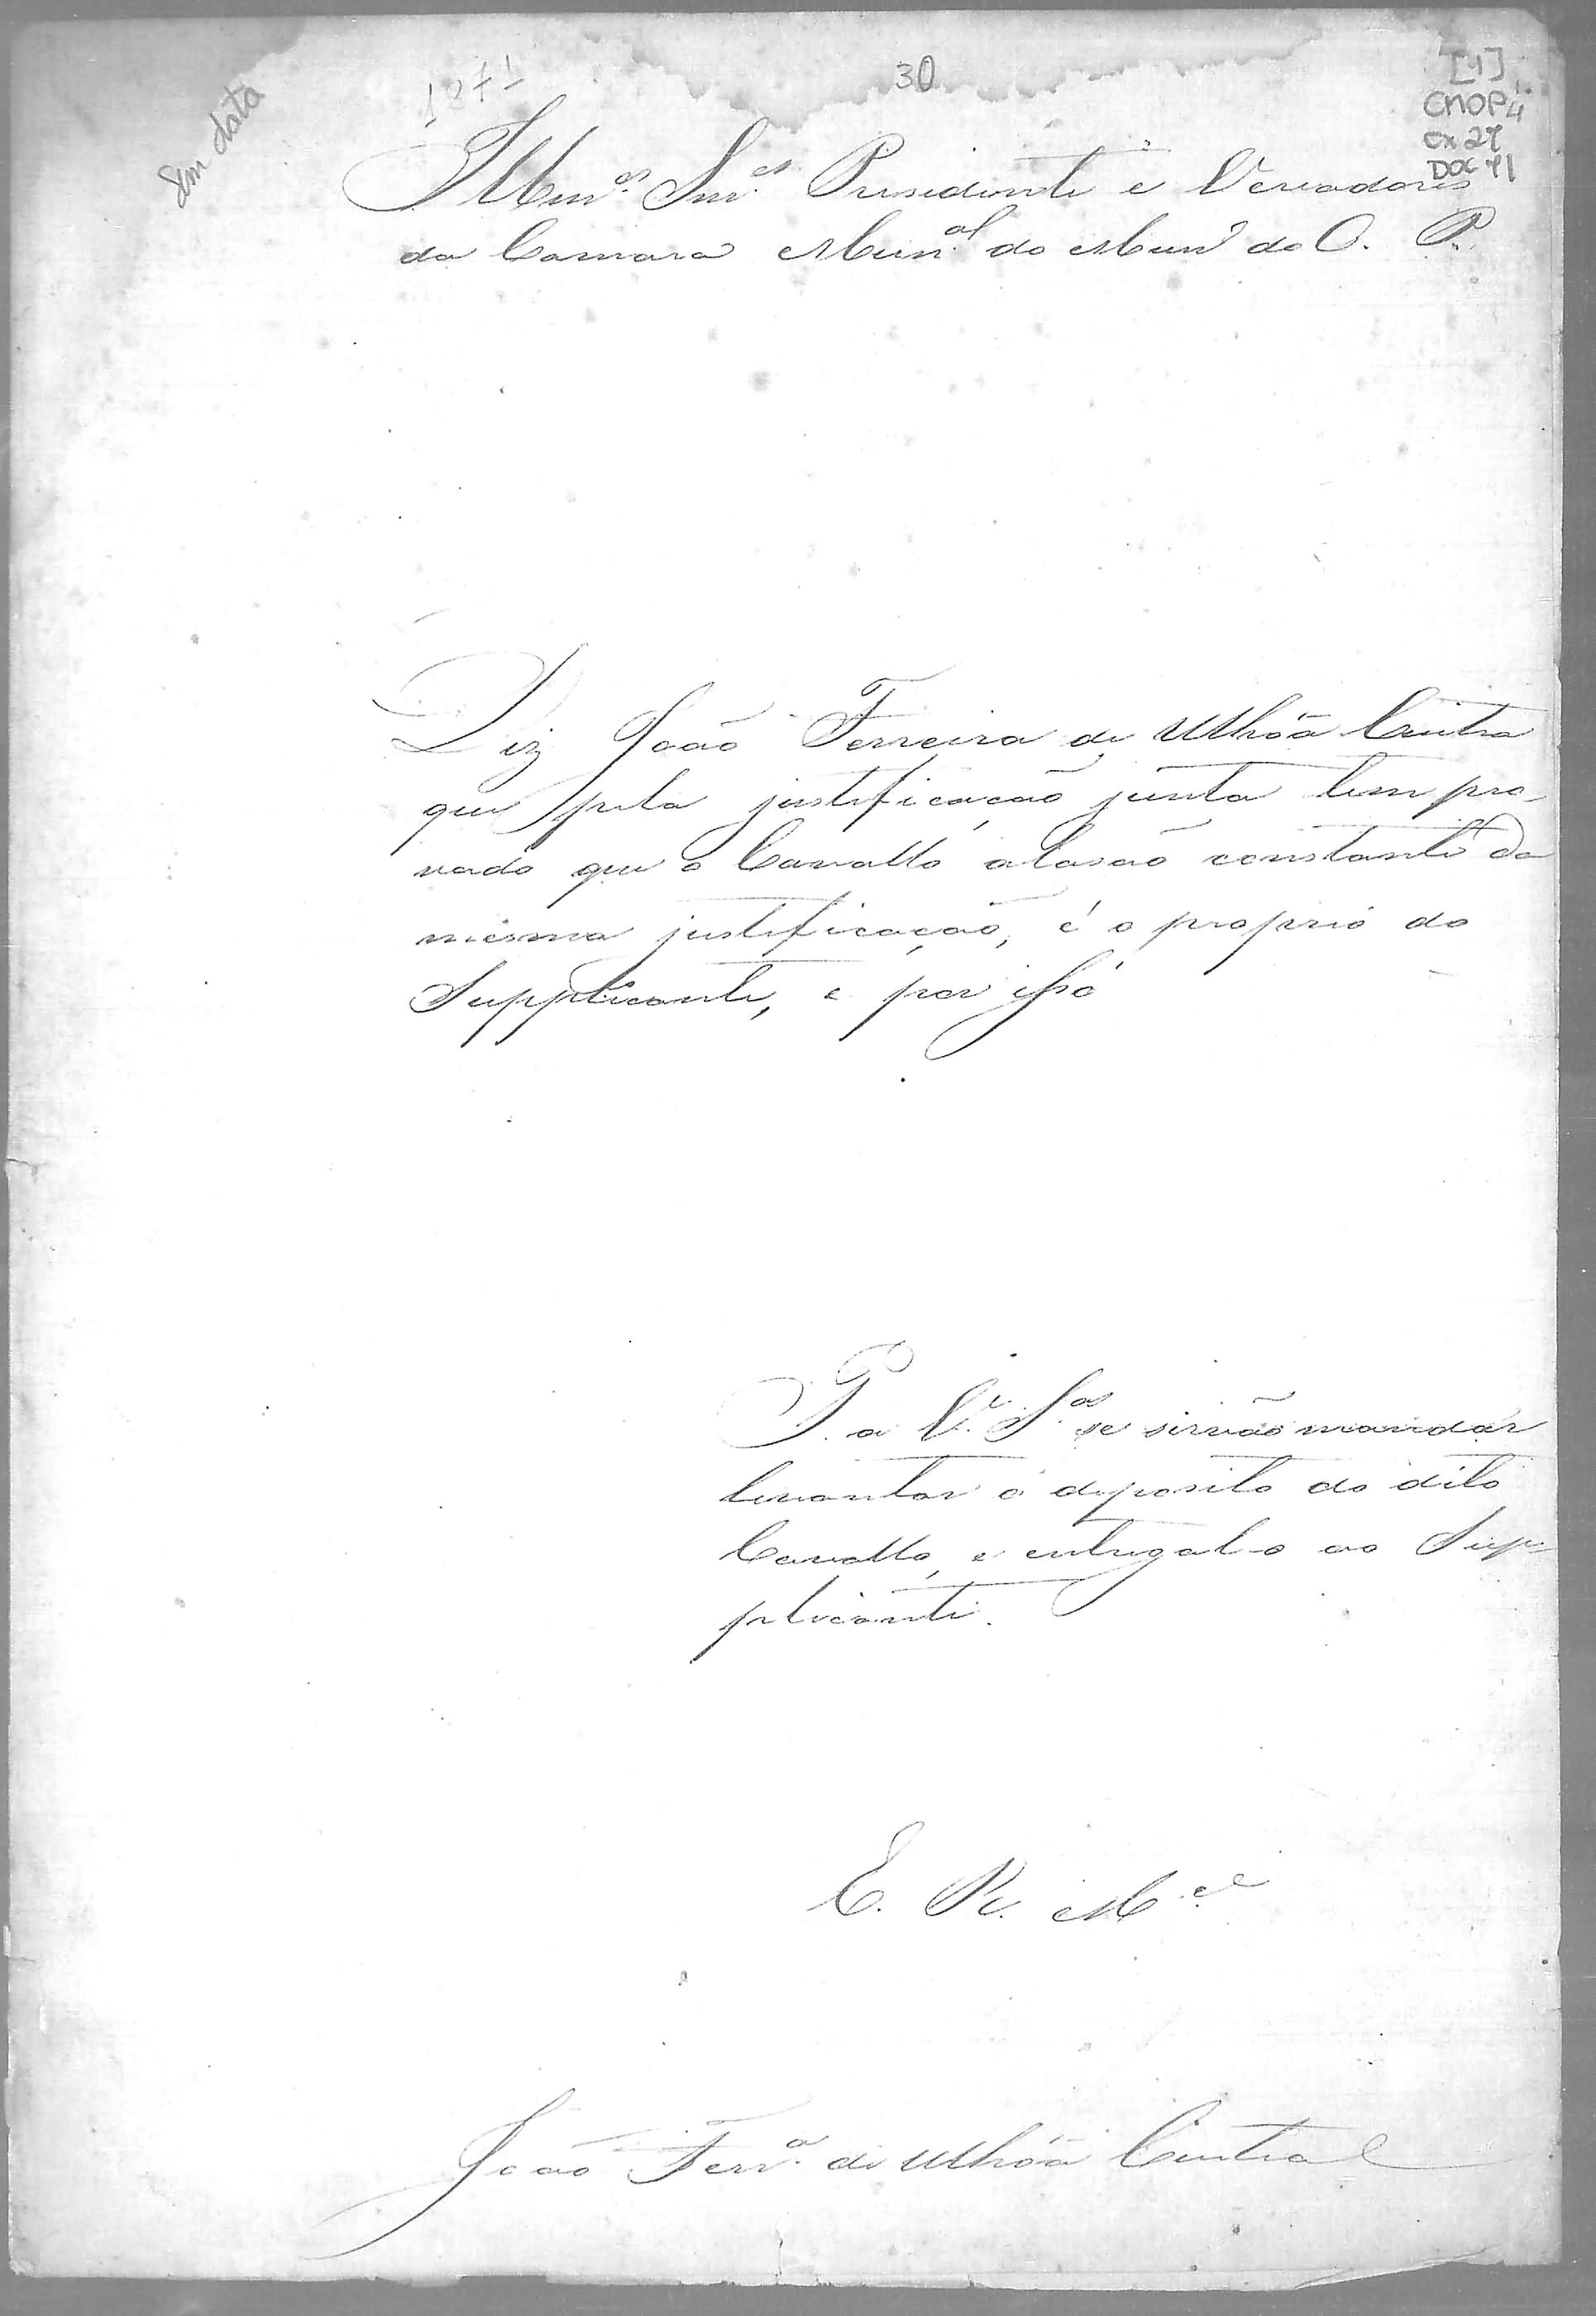 Sem data
1871
30
[1]
CMOP 4
CX 27
DOC 41
Illm.os Snr.es Presidente e Vereadores
da Camara Mun.al do Mun.o do O. P.
Diz João Ferreira de Ulhôa Cintra
que pela justificação junta tem pro-
vado que o Cavallo alasão constante da
mesma justificação, é o proprio do
Supplicante, e por isso
P. a V.V. S.as se sirvão mandar
levantar o deposito do dito
Cavallo, e entregal-o ao Sup-
plicante.
E. R. M.ce
João Ferr.a de Ulhôa Cintra